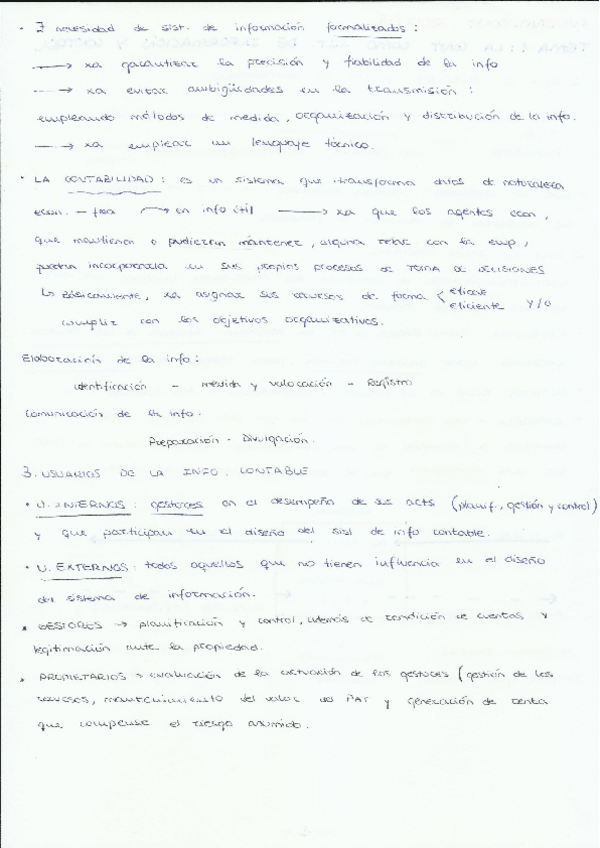 · ∃ necesidad de sist. de información formalizados :
⟶ xa garantizar la precisión y fiabilidad de la info
⟶ xa evitar ambigüedades en la transmisión :
empleando métodos de medida, organización y distribución de la info.
⟶ xa emplear un lenguaje técnico.
· LA CONTABILIDAD : es un sistema que transforma datos de naturaleza
econ. - fra → en info útil ⟶ xa que los agentes econ,
que mantienen o pudieran mantener, alguna relac con la emp,
puedan incorporarla en sus propios procesos de TOMA DE DECISIONES
↳ Básicamente, xa asignar sus recursos de forma < eficaz
eficiente y/o
cumplir con los objetivos organizativos.
Elaboración de la info :
identificación - medida y valoración - Registro
Comunicación de la info.
Preparación - Divulgación.
3. USUARIOS DE LA INFO. CONTABLE
· U. INTERNOS : gestores en el desempeño de sus acts (planif., gestión y control)
y que participan en el diseño del sist de info contable.
· U. EXTERNOS : todos aquellos que no tienen influencia en el diseño
del sistema de información.
* GESTORES → planificación y control, además de rendición de cuentas y
legitimación ante la propiedad.
* PROPIETARIOS > evaluación de la actuación de los gestores (gestión de los
recursos, mantenimiento del valor del PAT y generación de renta
que compense el riesgo asumido.